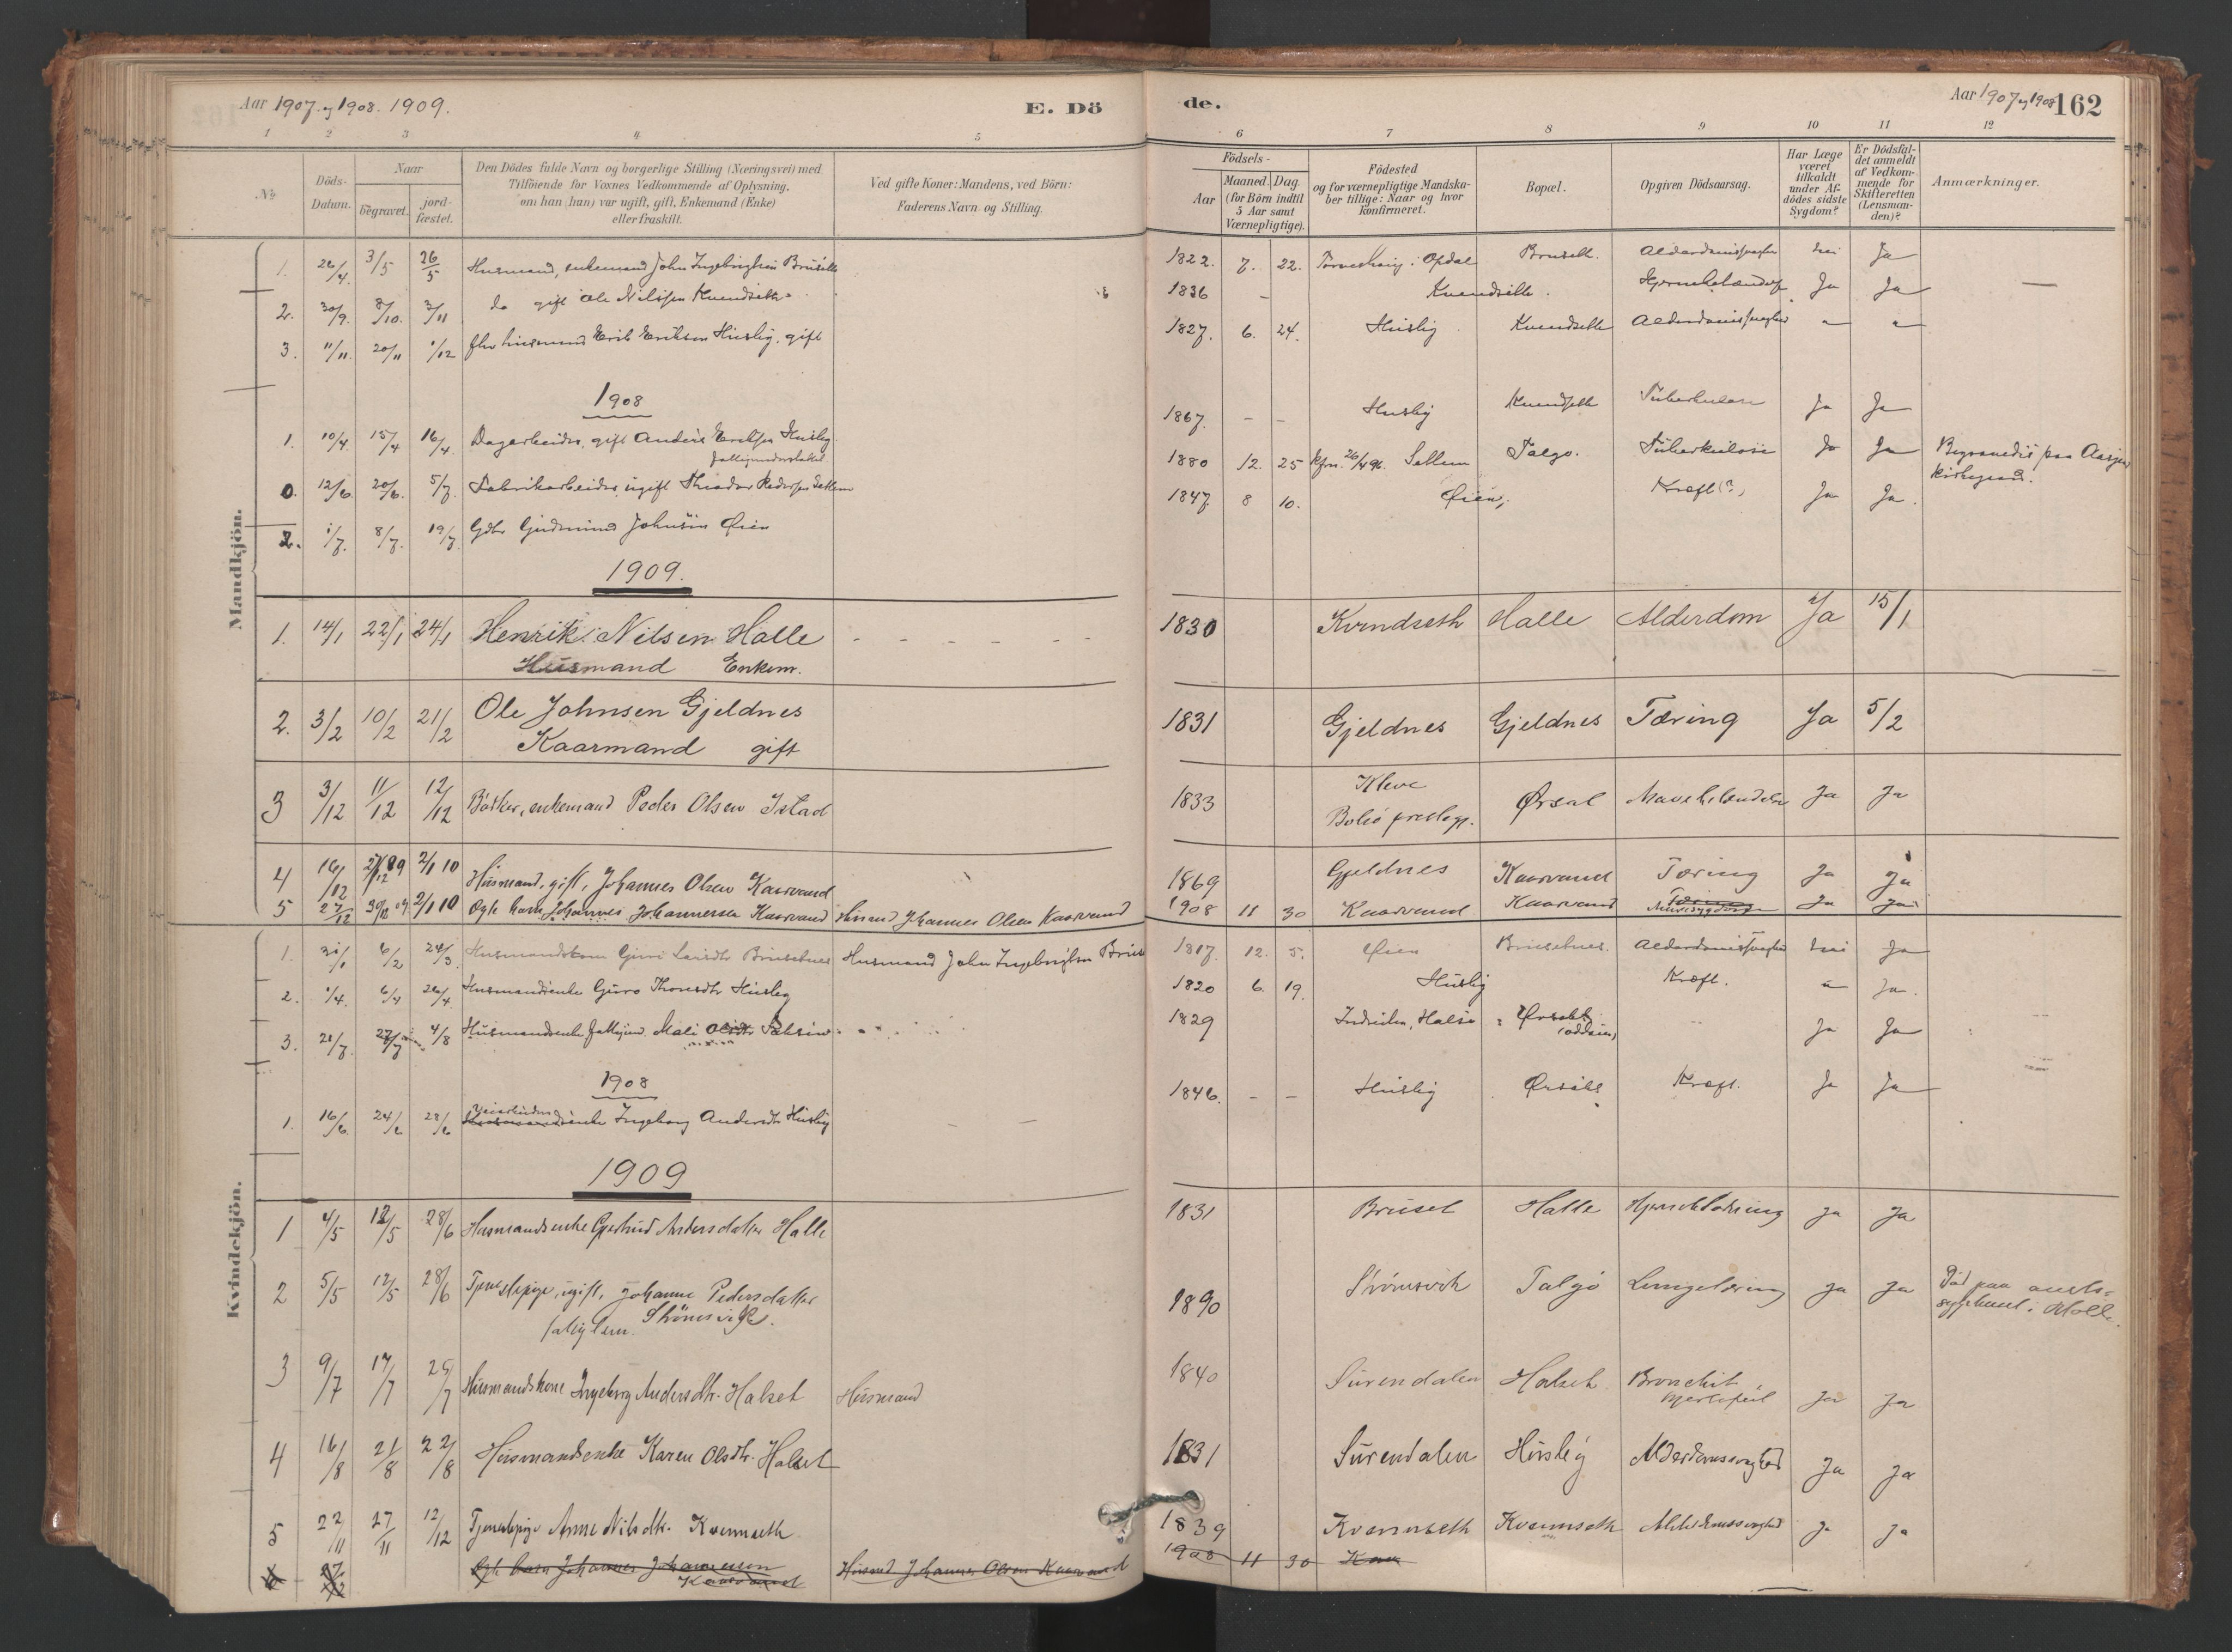 Aar 1907 og 1908. 1909.
E. Dö
de.
Aar 1907 og 1908
162
1 2 3 4 5 6 7 8 9 10 11 12
No.
Döds-
Datum.
Naar
begravet.
jord-
fæstet.
Den Dödes fulde Navn og borgerlige Stilling (Næringsvei) med
Tilföiende for Voxnes Vedkommende af Oplysning,
om han (hun) var ugift, gift, Enkemand (Enke)
eller fraskilt.
Ved gifte Koner: Mandens, ved Börn:
Faderens Navn og Stilling.
Födsels-
Aar
Maaned. Dag.
(for Börn indtil
5 Aar samt
Værnepligtige).
Födested
og for værnepligtige Mandska-
ber tillige: Naar og hvor
Konfirmeret.
Bopæl.
Opgiven Dödsaarsag.
Har Læge
været
tilkaldt
under Af-
dödes sidste
Sygdom?
Er Dödsfal-
det anmeldt
af Vedkom-
mende for
Skifteretten
(Lensman-
den)?
Anmærkninger.
Mandkjön.
1. 26/4 3/5 26/5 Husmand, enkemand John Ingebrigtsen Bruseth 1822. 7. 22. Opdal Bruseth. Alderdomssvaghed nei Ja
2. 30/9. 8/10. 3/11 do gift Ole Nilssen Kvendseth 1836 - Kvendseth. Ja Ja
3. 11/11. 20/11 1/12 fhv husmand Erik Eriksen Husby, gift 1827. 6. 24. Husby Kvendseth Alderdomssvaghed " "
1908
1. 10/4 15/4 16/4 Dagarbeider, gift Anders Eriksen Husby 1867. - - Husby Kvendseth Tuberkulose Ja Ja
fattigunderstøttet
0. 12/6 20/6. 5/7. Fabrikarbeider, ugift Theodor Pedersen Settem 1880 12. 25 kfm. 26/4 96. Settem Talgø. Tuberkulose Ja Ja Begravedes paa Aasgaard
kirkegaard.
2. 1/7. 8/7. 19/7. Gbr Gudmund Johnsen Øien 1847. 8 10. Øien, Kræft (?) Ja Ja.
1909.
1. 14/1 22/1 24/1 Henrik Nilsen Halle 1830 Kvendseth Halle Alderdom Ja 15/1
Husmand Enkem.
2. 3/2 10/2 21/2 Ole Johnsen Gjeldnes 1831 Gjeldnes Gjeldnes Tæring Ja 5/2
Kaarmand gift
3 3/12 11/12 12/12 Bødker, enkemand Peder Olsen Istad 1833 Kleve Ørsal Ja Ja
Bolsø prestegj.
4 16/12 2/1 10 Husmand, gift, Johannes Olsen Kaarvand 1869 Gjeldnes Kaarvand Tæring Ja Ja
5 27/12 30/12 09. 2/1 10 Ægte barn Johannes Johannessen Kaarvand Husmand Johannes Olsen Kaarvand 1908 11 30 Kaarvand Kaarvand Ja Ja
Kvindekjön.
1. 30/1 6/2 24/3. Husmandskone Guri Larsdtr Brusetnes Husmand John Ingebrigtsen Bruse 1817. 12. 5. Øien Brusetnes. Alderdomssvaghed nei Ja
2. 1/4. 6/4 26/4 Husmandsenke Guro Thoresdtr Husby 1820 6. 19. Husby Kræft. " Ja.
3. 21/7. 27/7 4/8 Husmandsenke, Mali Olsdtr 1829 Halse Ja Ja
1908
1. 16/6. 24/6 28/6 Ingeborg Andersdtr Husby 1846. - - Husby Ørsal Kræft. Ja Ja
1909
1 4/5 12/5 28/6 Husmandsenke Gjertrud Andersdatter Halle 1831 Bruset Halle Ja Ja
2 5/5 12/5 28/6 Tjenestepige, ugift, Johanne Pedersdatter 1890 Strømsvik Talgø Lungetæring Ja Ja Død paa amts-
fattiglem. Strømsvik. sygehuset i Molde.
3 9/7 17/7 25/7 Husmandskone Ingeborg Andersdtr. Halset Husmand 1840 Surendalen Halset Bronchit, Ja Ja
hjertefeil
4 16/8 21/8 22/8 Husmandsenke Karen Olsdtr. Halset 1831 Surendalen Husby Alderdomssvaghed Ja Ja
5 22/11 27/11 12/12 Tjenestepige Anne Nilsdtr. Kvennseth 1839 Kvennseth Kvennseth Alderdomssvaghed Ja Ja
6 27/12 Ægte barn Johannes Johannessen Husmd Johannes Olsen Kaarvand 1908 11 30 Kaar
Kaarvand